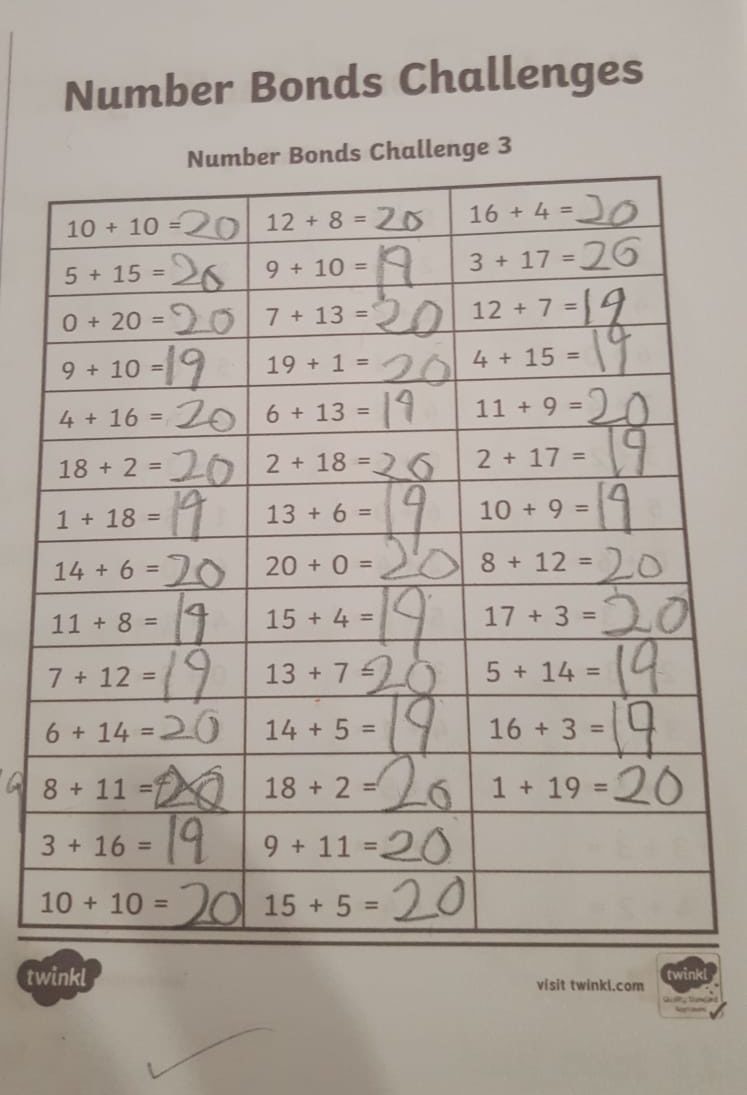 Number Bonds Challenges
Number Bonds Challenge 3
10 + 10 = 20 12 + 8 = 20 16 + 4 = 20
5 + 15 = 20 9 + 10 = 19 3 + 17 = 20
0 + 20 = 20 7 + 13 = 20 12 + 7 = 19
9 + 10 = 19 19 + 1 = 20 4 + 15 = 19
4 + 16 = 20 6 + 13 = 19 11 + 9 = 20
18 + 2 = 20 2 + 18 = 20 2 + 17 = 19
1 + 18 = 19 13 + 6 = 19 10 + 9 = 19
14 + 6 = 20 20 + 0 = 20 8 + 12 = 20
11 + 8 = 19 15 + 4 = 19 17 + 3 = 20
7 + 12 = 19 13 + 7 = 20 5 + 14 = 19
6 + 14 = 20 14 + 5 = 19 16 + 3 = 19
19 8 + 11 = 20 18 + 2 = 20 1 + 19 = 20
3 + 16 = 19 9 + 11 = 20
10 + 10 = 20 15 + 5 = 20
twinkl visit twinkl.com twinkl
Quality Standard
Approved